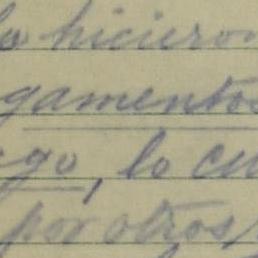 lo hicieron
gamentos
go, lo cu
por otros